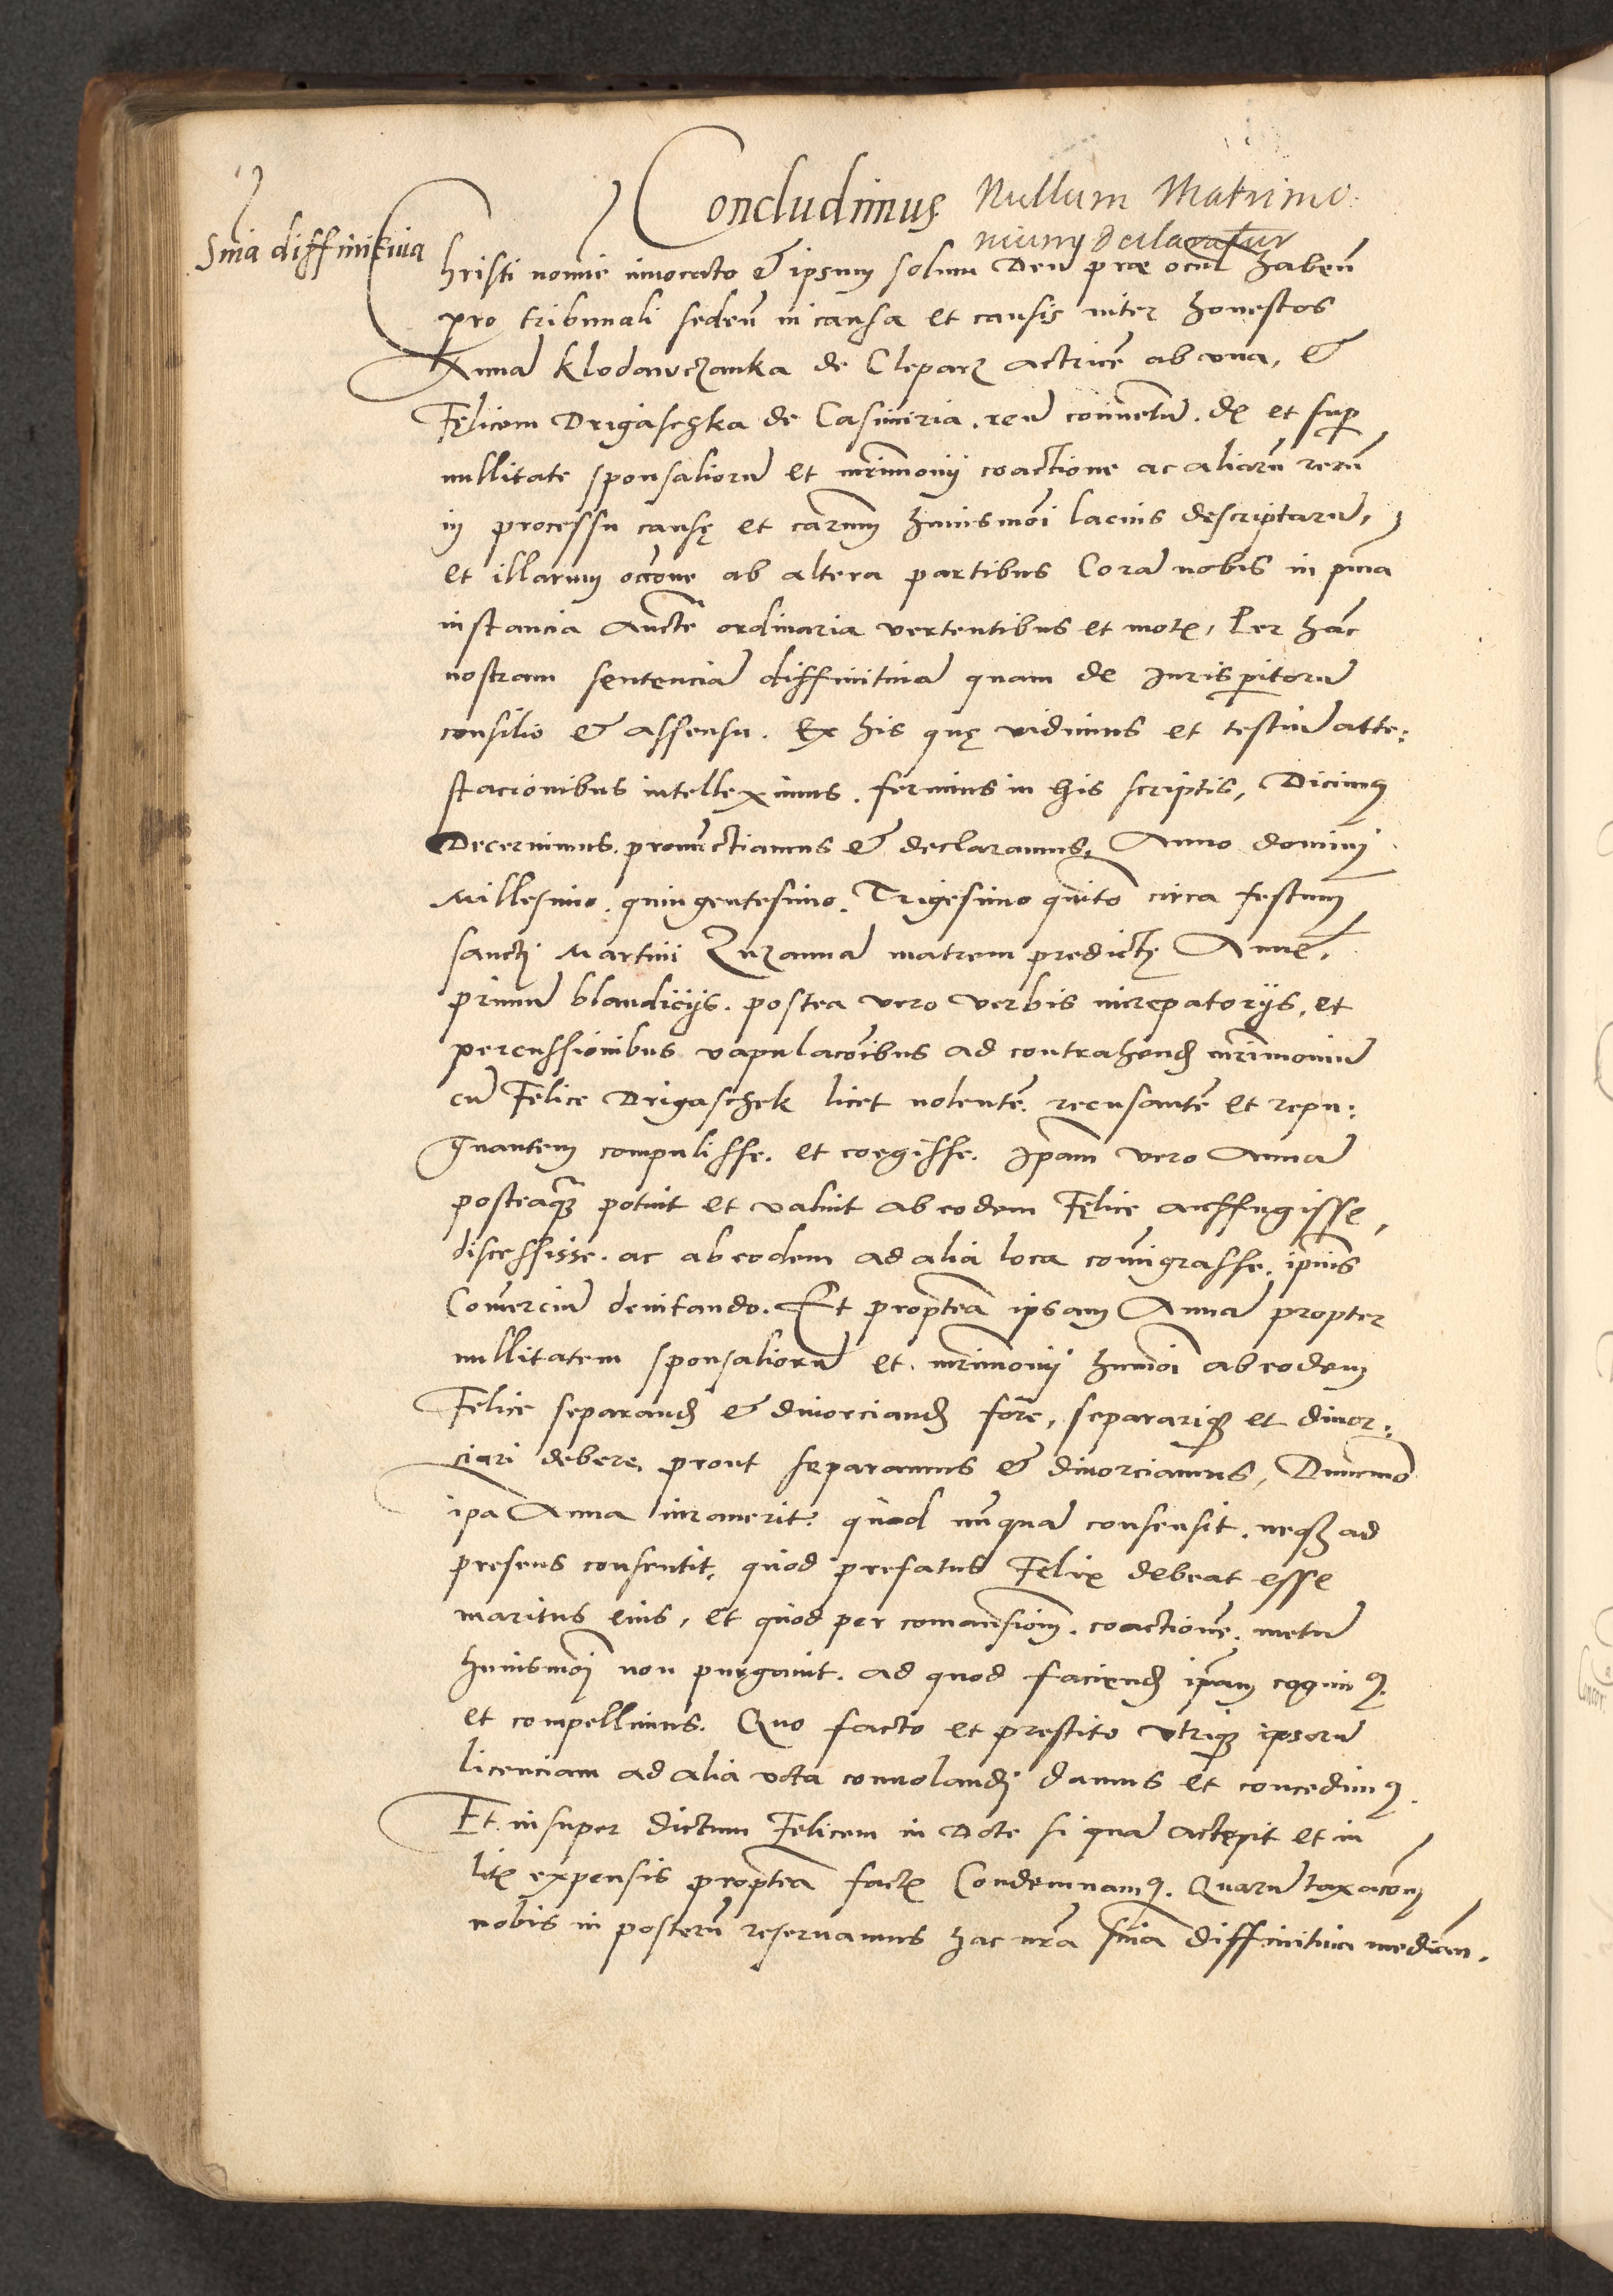 Concludimus Nullum Matrimo:
nium declaratur
Snia diffinitiua
Christi nomie inuocato & ipsum solum Deū prae ocul habeñ
pro tribunali sedeñ in causa et causis inter honestos
Annā Klodawczanka de Cleparz actricē ab vna, &
Fęlicem Drigaschka de Casimiria. reū conuentū. de et suꝑ
nullitate sponsaliorū et mrimonij coactione ac aliarū rerū
in processu causę et earum huiusmoi lacius descriptarū,
et illarum occone ab altera partibus Corā nobis in pma
instancia Aucte ordinaria vertentibus et motꝭ, Per hāc
nostram sentenciā diffinitiuā quam de Jurisꝑitorū
consilio & assensu. Ex his quę vidimus et testiū atte:
stacionibus intelleximus. ferimus in his scriptis, Dicimꝰ
Decernimus. pronunctiamus & declaramus, Anno domini
Millesimo. quingentesimo. Trigesimo quito circa festum
sancti Martini Zuzannā matrem predictę Annę,
primū blandicijs. postea vero verbis increpatorijs, et
percussionibus vapulacoibus ad contrahend mrimoniū
cū Fęlice Drigaschek licet nolentē. recusantē et repu:
gnantem compulisse. et coęgisse. Ipam vero Annā
posteaꝗ potuit et valuit ab eodem Fęlice auffugisse,
discessisse. ac ab eodem ad alia loca comigrasse. ipius
Comerciū deuitando. Et propterea ipsam Annā propter
nullitatem sponsaliorū et. mrimonij humoi ab eodem
Felice separand & diuorciand fore, separariqꝫ et diuor:
ciari debere, prout separamus & diuorciamus, Dummo
ipa Anna iurauerit: quod nūquā consensit. neqꝫ ad
presens consentit, quod prefatus Felix debeat esse
maritus eius, et quod per comansionem. coactionē. metū
huiusmoi non purgauit. ad quod faciend ipam cogimꝰ.
et compellimus. Quo facto et prestito vtriqꝫ ipsorū
licenciam ad alia vota conuolandi damus et concedimꝰ.
Et. insuper dictum Felicem in Dote si quā accepit et in
litꝭ expensis propterea factꝭ Condemnamꝰ. Quarū taxacoem
nobis in posterū reseruamus hac nra snia diffinitiua median.